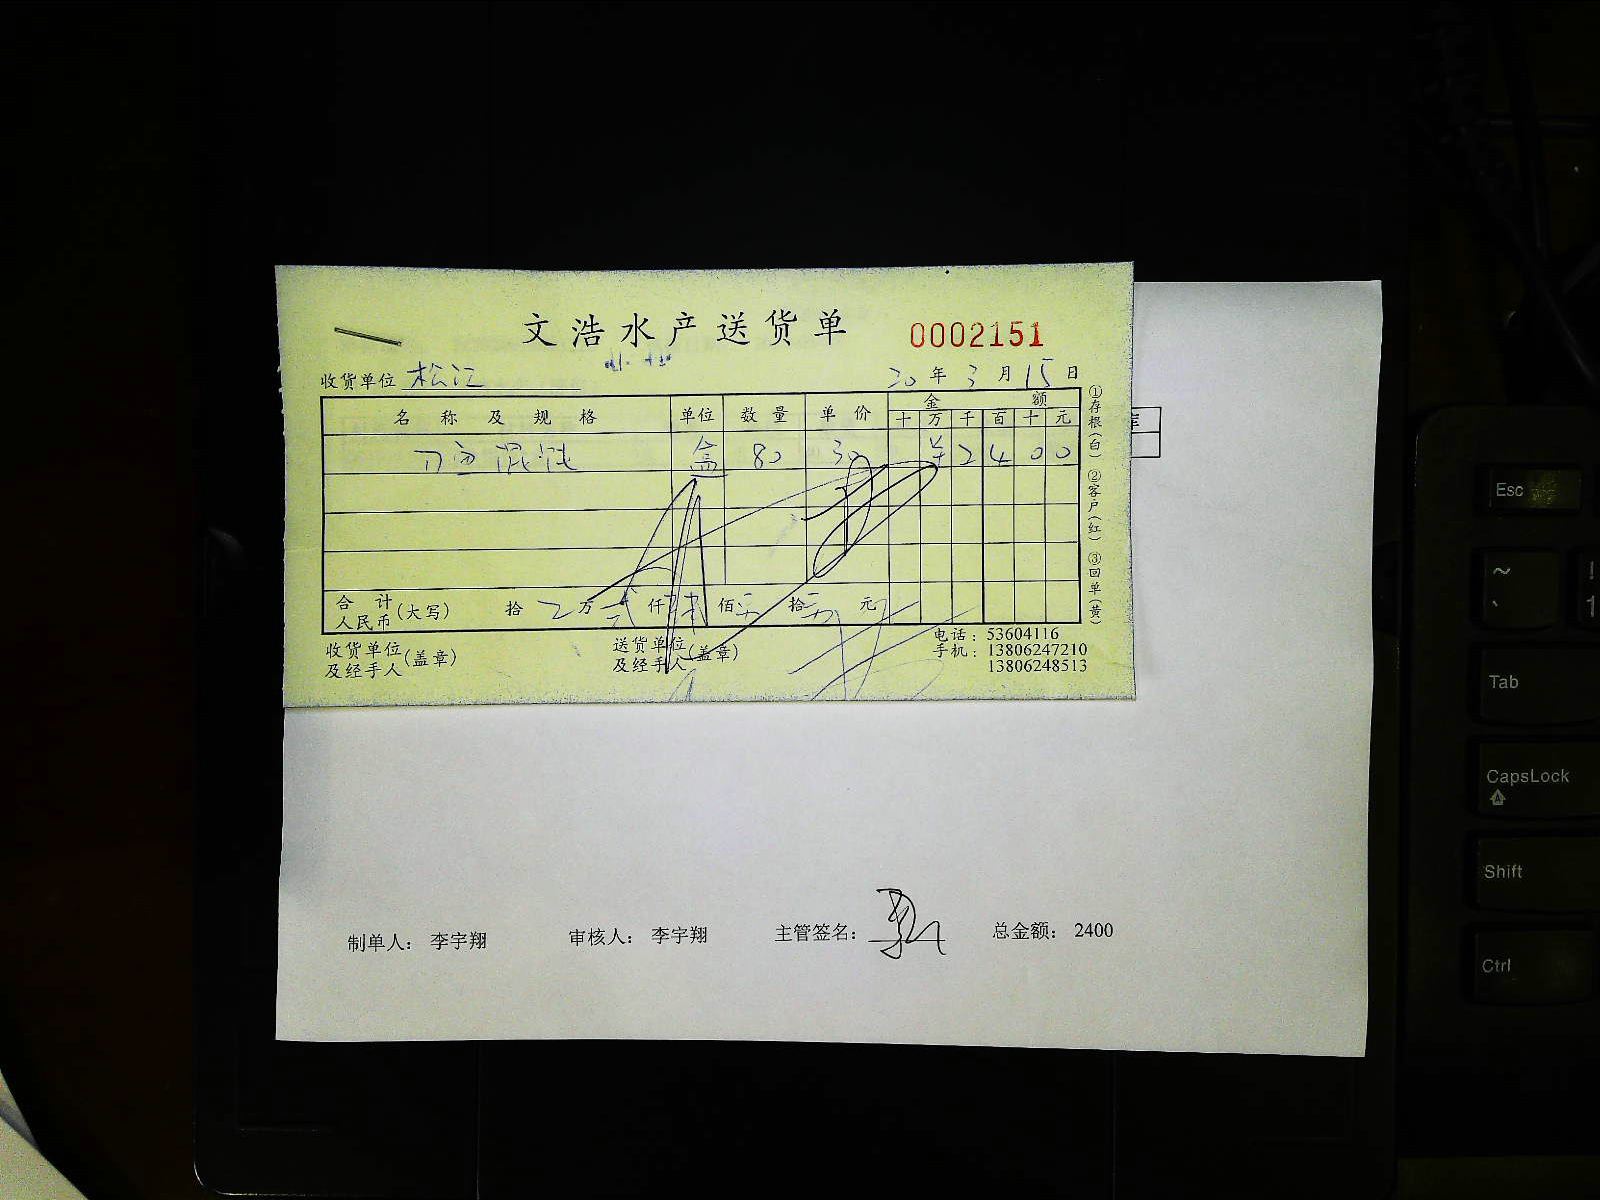 文浩水产送货单 0002151
收货单位 松江 20年3月15日
名称及规格 单位 数量 单价 金额
十 万 千 百 十 元
刀鱼混饨 盒 80 30 ¥2400
合计人民币(大写) 拾 万 仟 佰 拾 元
收货单位及经手人(盖章) 送货单位及经手人(盖章) 电话：53604116
手机：13806247210
13806248513
①存根(白) ②客户(红) ③回单(黄)
制单人： 李宇翔 审核人： 李宇翔 主管签名： 总金额： 2400
Esc
~
Tab
CapsLock
Shift
Ctrl